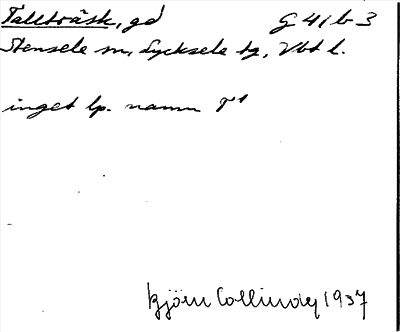 Tallträsk, gd G 41 b 3
Stensele sn, Lycksele tg, Vbt l.
inget lp. namn T¹
Björn Collinder 1937